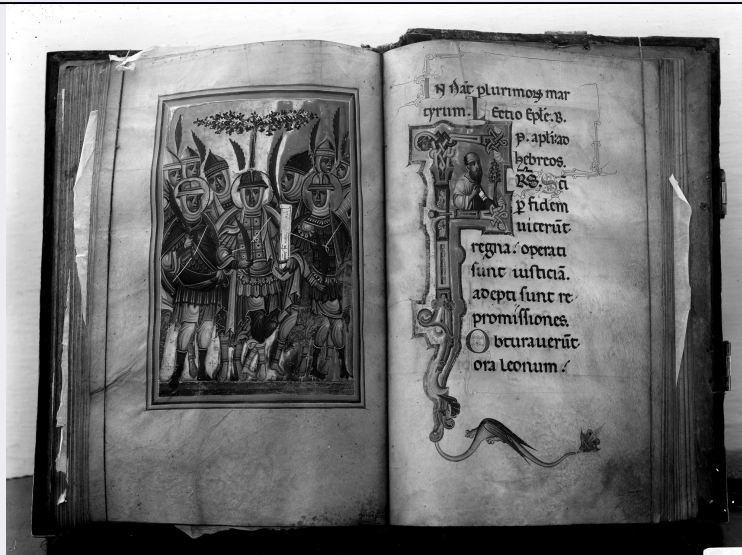 In nat̄ plurimoꝝ mar
tyrum. Lectio Epl̄e. B.
P. apl̄i ad
hebreos.
FRS. Sc̄i
ꝑ fidem
uicerūt
regna. operati
sunt iusticiā.
adepti sunt re
promissiones.
Obturauerūt
ora leonum.